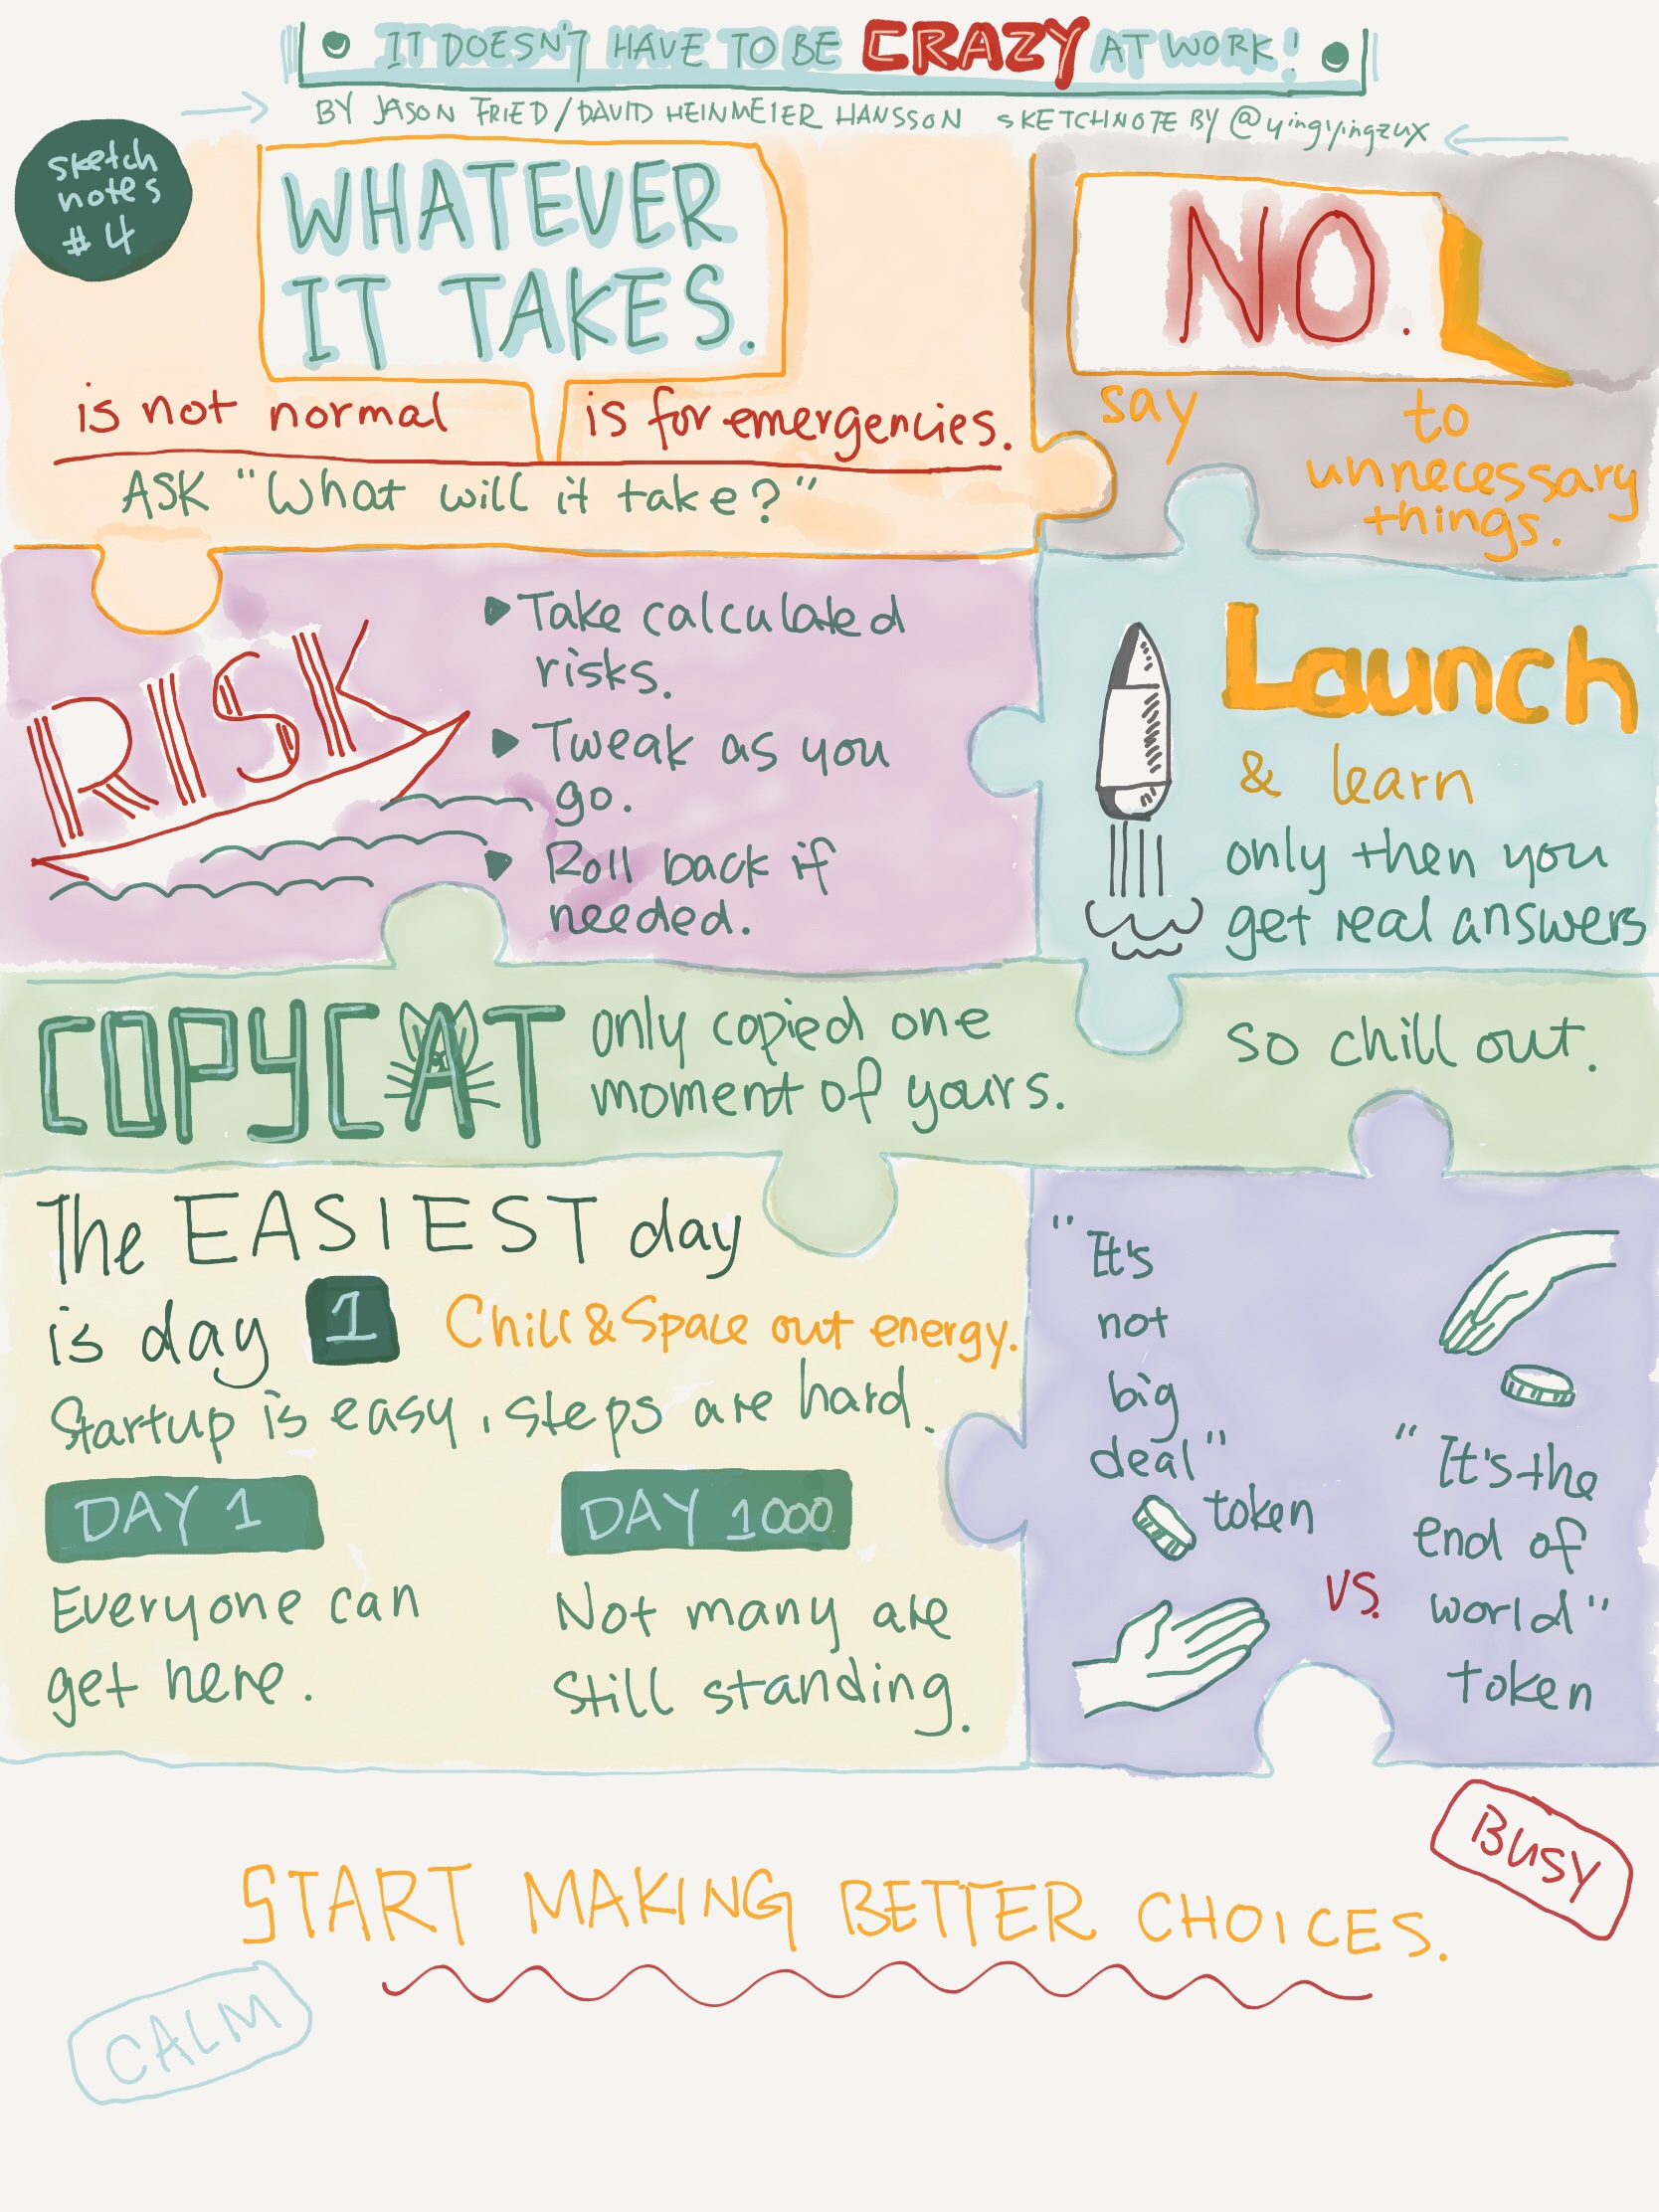 IT DOESN'T HAVE TO BE CRAZY AT WORK!
BY JASON FRIED/DAVID HEINMEIER HANSSON SKETCHNOTE BY @yingyingzux
sketch
notes
#4
WHATEVER
IT TAKES.
is not normal is for emergencies.
ASK "What will it take?"
NO.
say to
unnecessary
things.
RISK
Take calculated
risks.
Tweak as you
go.
Roll back if
needed.
Launch
& learn
only then you
get real answers
COPYCAT
only copied one
moment of yours.
so chill out.
The EASIEST day
is day 1 Chill & Space out energy.
Startup is easy, steps are hard.
DAY 1
Everyone can
get here.
DAY 1000
Not many are
still standing.
"It's
not
big
deal"
token
vs.
"It's the
end of
world"
token
BUSY
START MAKING BETTER CHOICES.
CALM